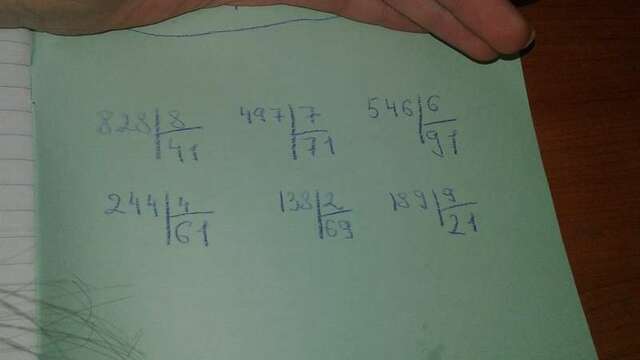 828 8 497 7 546 6
41 71 91
244 4 138 2 189 9
61 69 21